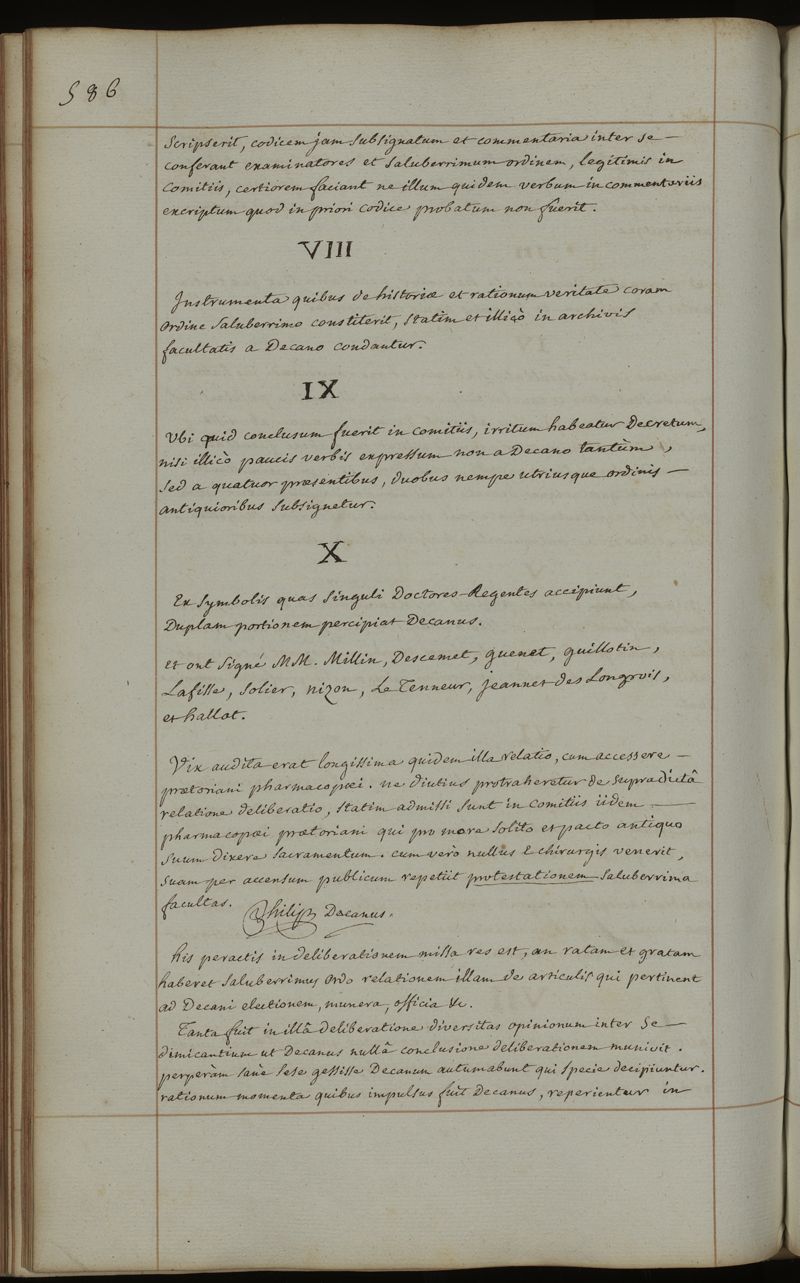 586
Scripserit, codicem jam subsignatum et commentaria inter se –
conferant examinatores et saluberrimum ordinem, legitimis in
Comitiis, certiorem faciant ne illum quidem verbum in commentariis
excriptum quod in priori codice probatum non fuerit.
VIII
Instrumenta quibus de historiæ et rationum veritate coram
Ordine saluberrimo constiterit, statim et illicò in archivis
facultatis a Decano condantur.
IX
Ubi quid conclusum fuerit in comitiis, irritum habeatur Decretum,
nisi illicò paucis verbis expressum non a Decano tantùm,
sed a quatuor præsentibus, duobus nempe utriusque ordinis –
antiquioribus subsignetur.
X
Ex symbolis quas singuli Doctores-Regentes accipiunt,
Duplam portionem percipiat Decanus.
Et ont signé MM. Millin, Descemet, guenet, guillotin,
Lafisse, Solier, nizon, Le Tenneur, jeannet des Longrois,
et hallot.
Vix audita erat longissima quidem illa relatio, cum accessere –
prætoriani pharmacopœi. ne diutius protraheretur de supradictâ
relatione deliberatio, statim admissi sunt in comitiis iidem –
pharmacopœi prætoriani qui pro more solito et pacto antiquo
suum dixere sacramentum. cum verò nullus è chirurgis venerit,
suam per accensum publicum repetiit protestationem saluberrima
facultas.
Philip Decanus.
his peractis in deliberationem missa res est, an ratam et gratam
haberet saluberrimus ordo relationem illam de articulis qui pertinent
ad Decani electionem, munera, officia &c.
Tanta fuit in illâ deliberatione diversitas opinionum inter se –
dimicantium ut Decanus nullâ conclusione deliberationem munivit.
perperàm sanè sese gessisse Decanum autumabunt qui specie decipiuntur.
rationum momenta quibus impulsus fuit Decanus, reperientur in